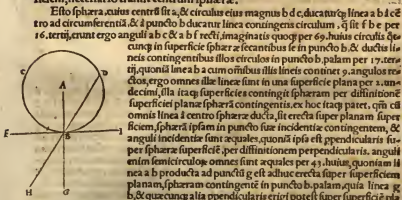 Esto sphæra, cuius centrū sit a, & circulus eius magnus b d c, ducaturq; linea a b à cē
tro ad circumferentiā, & à puncto b ducatur linea contingens circulum, q̃ sit f b e per
16. tertij, erunt ergo anguli a b e & a b f recti, imaginatis quoq; per 69. huius circulis q̄e
cunq; in superficie sphæræ secantibus se in puncto b, & ductis li-
neis contingentibus illos circulos in puncto b, palam per 17. ter-
tij, quoniā linea b a cum omnibus illis lineis continet 9. angulos re
ctos, ergo omnes illæ lineæ sunt in una superficie plana per 2. un-
decimi, illa itaq; superficies contingit sphæram per diffinitionē
superficiei planæ sphærā contingentis. ex hoc itaq; patet, qm̄ cū
omnis linea à centro sphæræ ducta, sit erecta super planam super
ficiem, sphærā ipsam in puncto suæ incidentiæ contingentem, &
anguli incidentiæ sunt æquales, quoniā ipsa est ppendicularis su-
per sphæræ superficiē, per diffinitionem perpendicularis. anguli
enim semicirculorū omnes sunt æquales per 43. huius, quoniam li
nea a b producta ad punctū g est adhuc erecta super superficiem
planam, sphæram contingentē in puncto b. palam, quia linea g
b, & quæcunq; alia ppendicularis erigi potest super superficiē pla
A
B
C
D
E
H
G